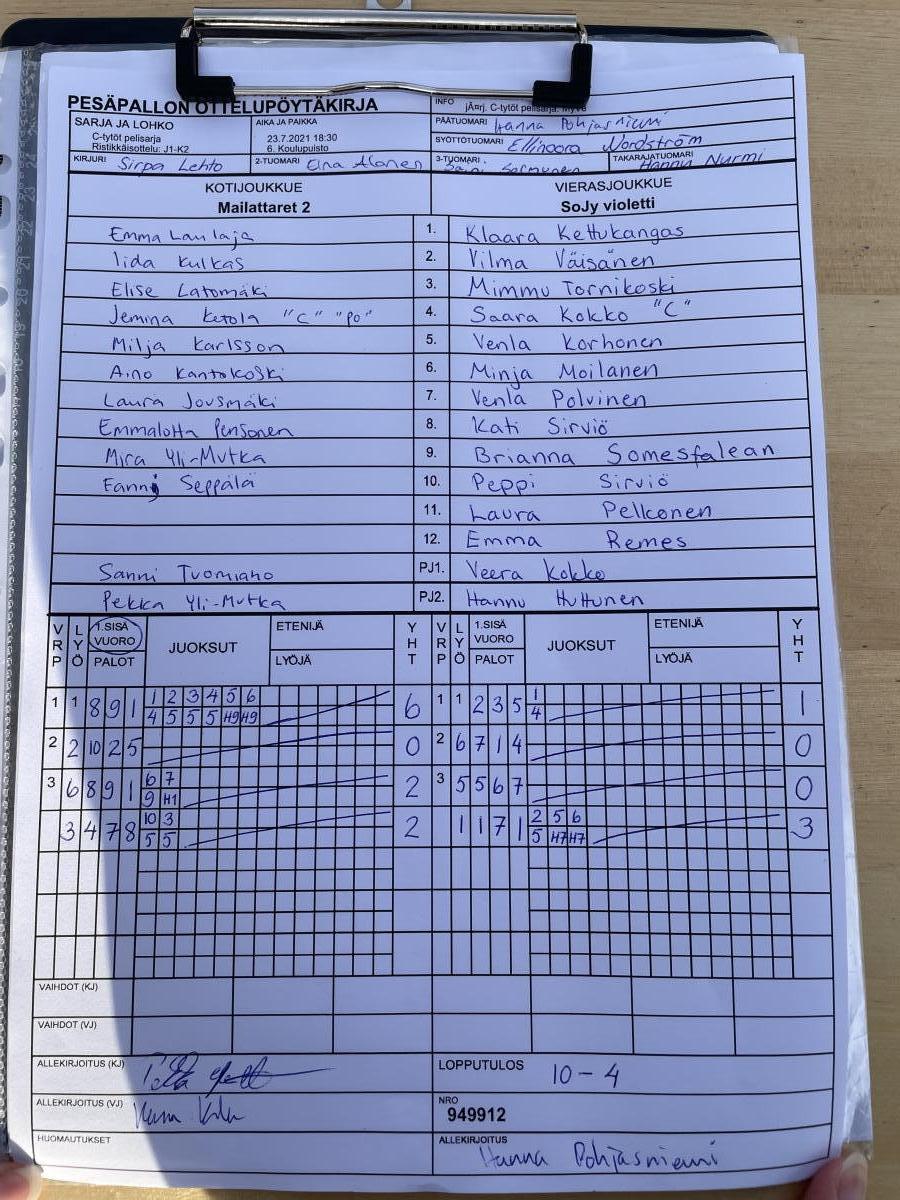 PESÄPALLON OTTELUPÖYTÄKIRJA
INFO jÃ¤rj. C-tytöt pelisarja:
SARJA JA LOHKO
C-tytöt pelisarja
Ristikkäisottelu: J1-K2
AIKA JA PAIKKA
23.7.2021 18:30
6. Koulupuisto
PÄÄTUOMARI Hanna Pohjasniemi
SYÖTTÖTUOMARI Ellinoora Nordström
KIRJURI Sirpa Lehto
2-TUOMARI Elna Alanen
3-TUOMARI
TAKARAJATUOMARI Hannu Nurmi
KOTIJOUKKUE VIERASJOUKKUE
Mailattaret 2 SoJy violetti
Emma Laulaja 1. Klaara Kettukangas
Iida Kulkas 2. Vilma Väisänen
Elise Latomäki 3. Mimmu Tornikoski
Jemina Ketola "C" "PO" 4. Saara Kokko "C"
Milja Karlsson 5. Venla Korhonen
Aino Kantokoski 6. Minja Moilanen
Laura Jousmäki 7. Venla Polvinen
Emmalotta Pensonen 8. Kati Sirviö
Mira Yli-Mutka 9. Brianna Somesfalean
Fanni Seppälä 10. Peppi Sirviö
11. Laura Pelkonen
12. Emma Remes
Sanni Tuomiaho PJ1. Veera Kokko
Pekka Yli-Mutka PJ2. Hannu Huttunen
VRP LYÖ 1.SISÄ VUORO PALOT JUOKSUT ETENIJÄ LYÖJÄ YHT VRP LYÖ 1.SISÄ VUORO PALOT JUOKSUT ETENIJÄ LYÖJÄ YHT
1 1 8 9 1 1 2 3 4 5 6 6 1 1 2 3 5 1 1
4 5 5 5 H9 H9 4
2 2 10 2 5 0 2 6 7 1 4 0
3 6 8 9 1 6 7 2 3 5 5 6 7 0
9 H1
3 4 7 8 10 3 2 1 1 7 1 2 5 6 3
5 5 5 H7 H7
VAIHDOT (KJ)
VAIHDOT (VJ)
ALLEKIRJOITUS (KJ)
LOPPUTULOS 10-4
ALLEKIRJOITUS (VJ)
NRO
949912
HUOMAUTUKSET
ALLEKIRJOITUS Hanna Pohjasniemi